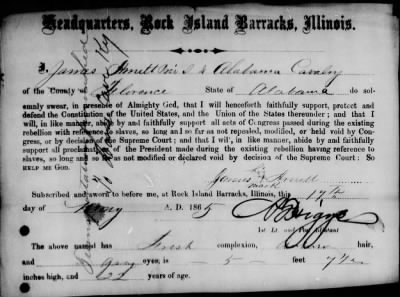 Headquarters, Rock Island Barracks, Illinois.
I, James Arnett Alabama Cavalry
of the County of Florence State of Alabama do sol-
emnly swear, in presence of Almighty God, that I will henceforth faithfully support, protect and
defend the Constitution of the United States, and the Union of the States thereunder; and that I
will, in like manner, abide by and faithfully support all acts of Congress passed during the existing
rebellion with reference to slaves, so long and so far as not repealed, modified, or held void by Con-
gress, or by decision of the Supreme Court; and that I will, in like manner, abide by and faithfully
support all proclamations of the President made during the existing rebellion having reference to
slaves, so long and so far as not modified or declared void by decision of the Supreme Court: So
HELP ME GOD.
James Arnett
his
mark
Subscribed and sworn to before me, at Rock Island Barracks, Illinois, this 17th
day of A. D. 1865
1st Lt and Post Adjutant
The above named has complexion, hair,
and gray eyes; is 5 feet 7
inches high, and 22 years of age.